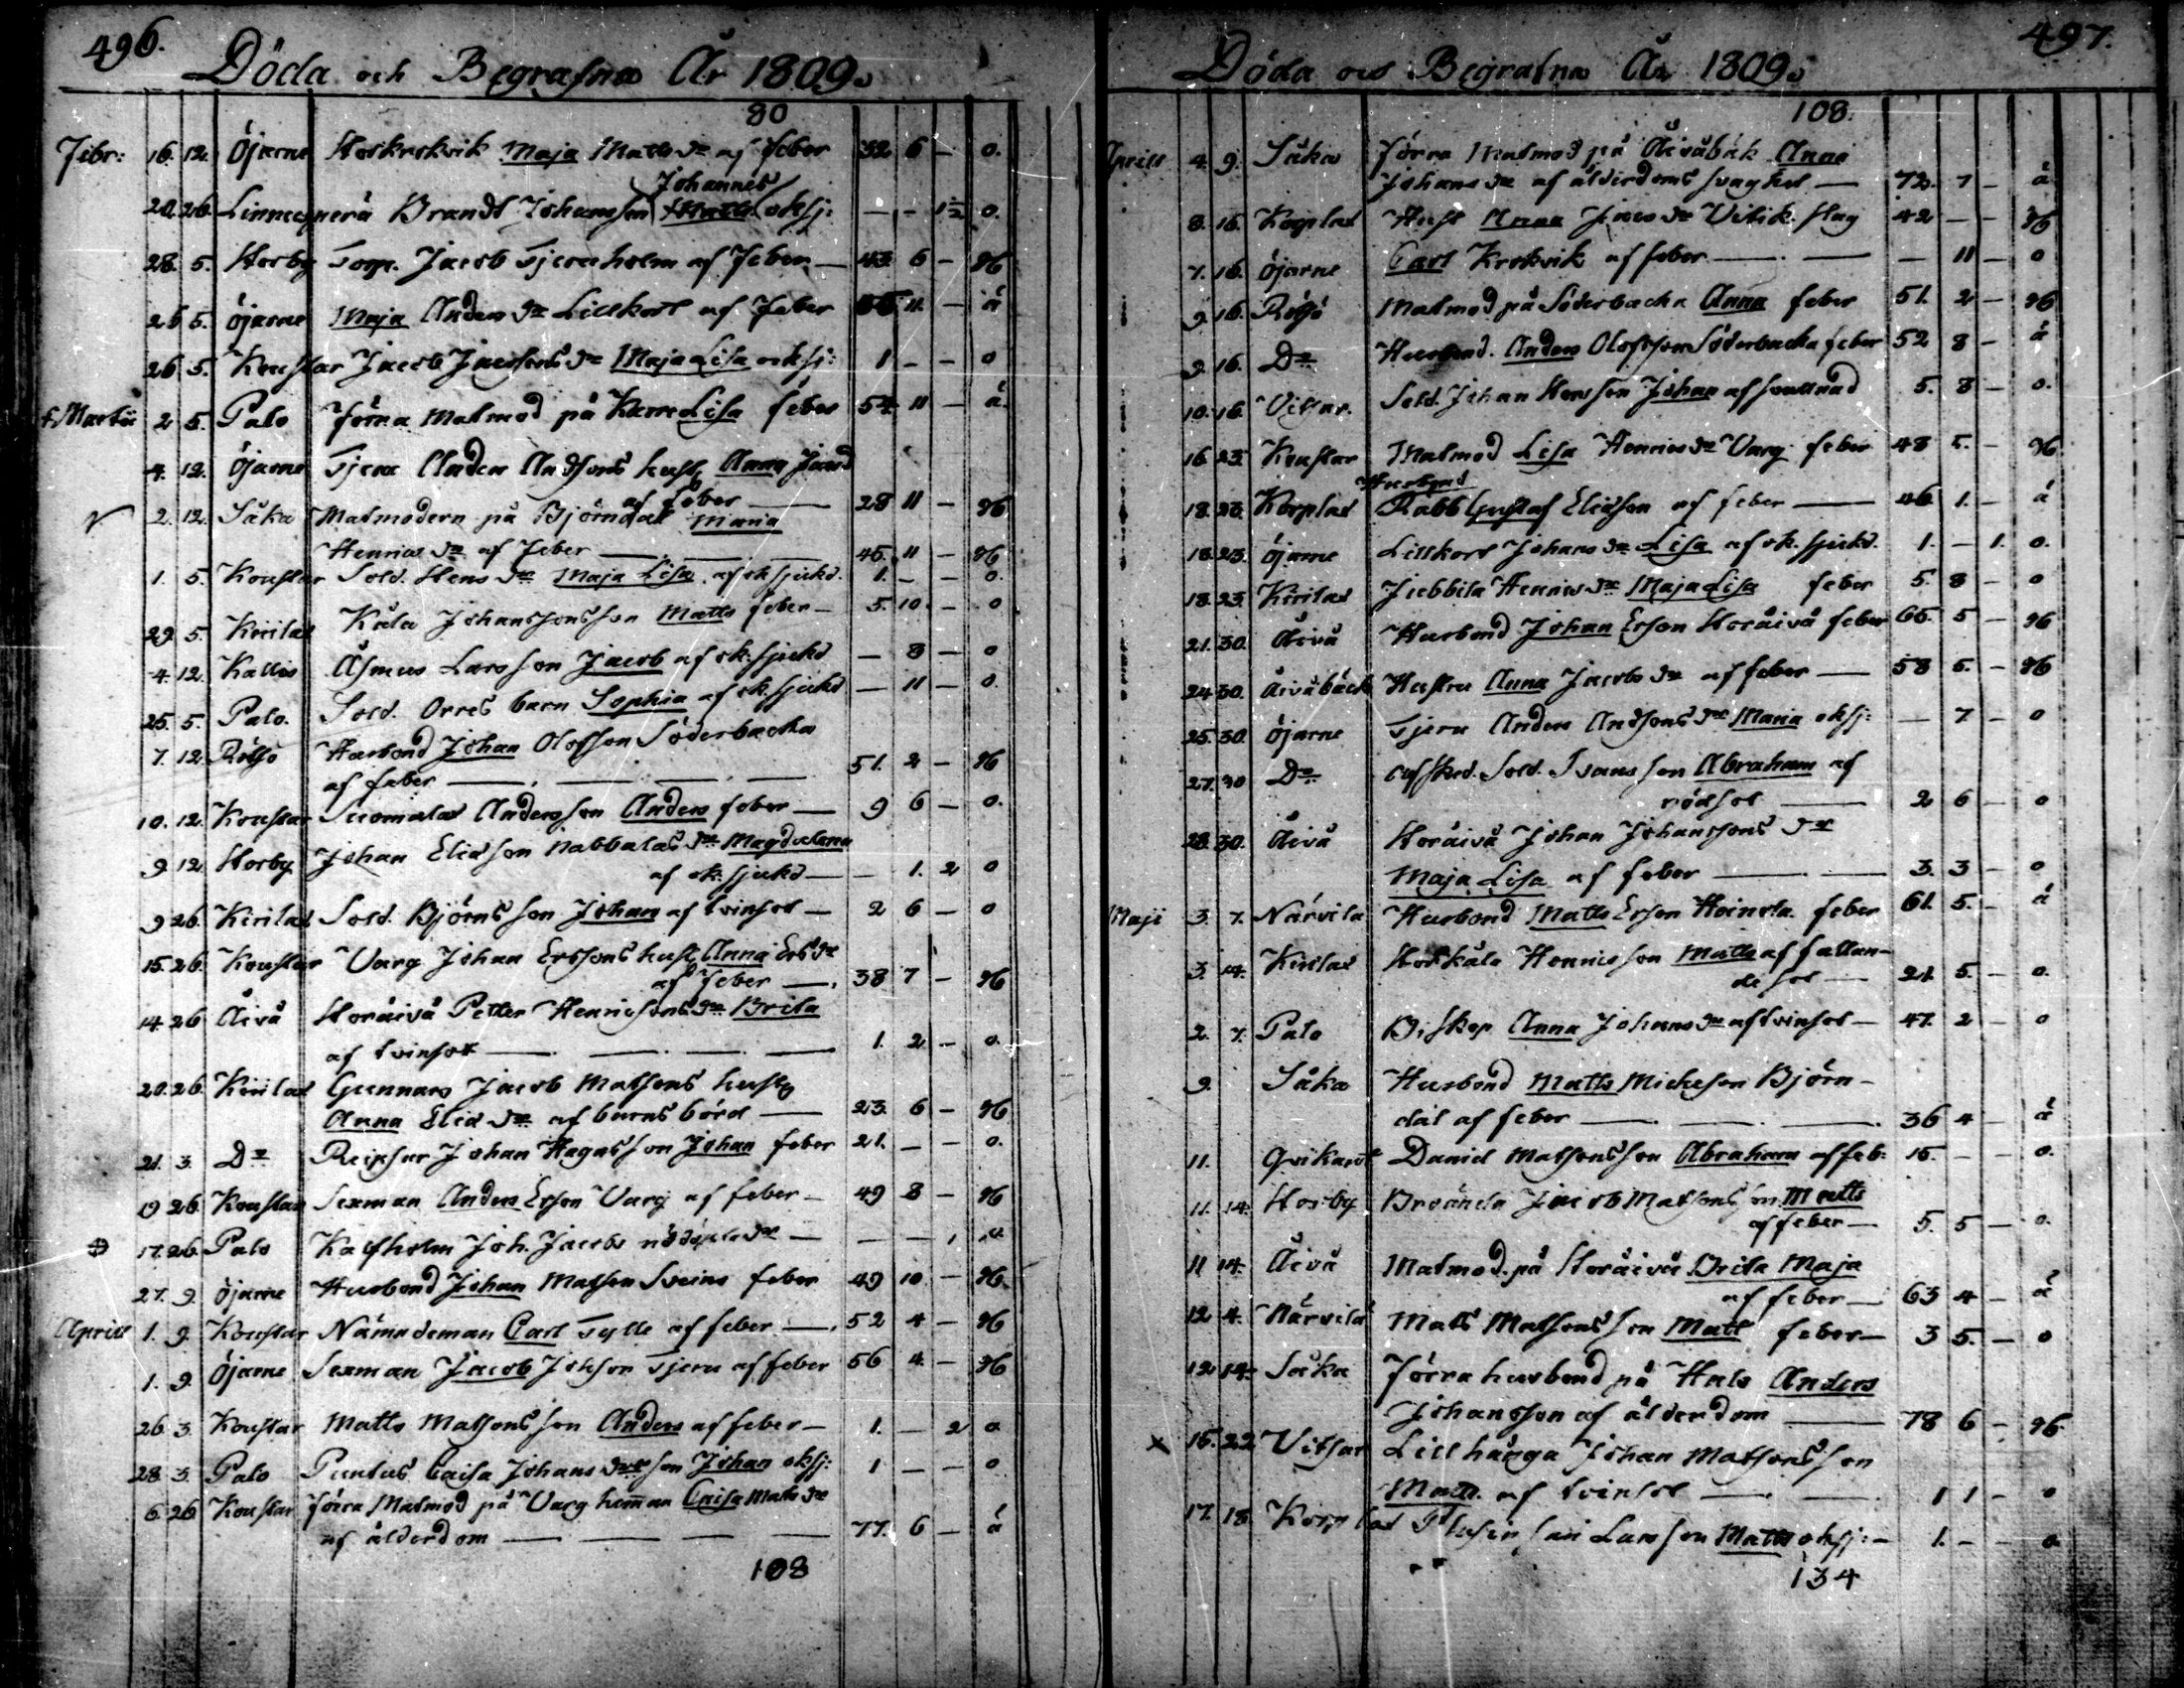 496.
Döda och Begrafna År 1809.
80
Febr: 16. 12. Öjarne Storkrokvik Maja Matts dr af feber 32 6 – o.
Johannes
20. 26. Linneperä Brandt Johansson Matts oksj: – – 1½ o.
28. 5. Storby Torp. Jacob Tjereholm af Feber — 43 6 – g6
26 5. Öjarne Maja Anders dr Lillkort af Feber 11 – ä
26 5. Koustar Jacob Jacobsons dr Maja Lisa oksj: 1 – – o
Martii 2 5. Palo Förra Matmod på Lisa feber 54 11 – ä.
4. 12. Öjarne Tjeru Anders Andsons hust. Anna
af feber — 28 11 – g6
2. 12. Såka Matmodern på Björndal Maria
Henrics dr af Feber — 45. 11 – g6
1. 5. Koustar Sold. Stens dr Maja Lisa af ok sjukd. 1. – – o.
29. 5. Kirilas Kåla Johanssons son Matts feber – 5. 10. – o
4. 12. Kallis Åsmus Larsson Jacob af ok. sjukd – 8 – o
25. 5. Palo. Sold. Orres barn Sophia af ok. sjukd – 11 – o.
7. 12. Rötsö Husbond Johan Olofsson Söderbacka
af feber — 51. 2 – g6
10. 12. Koustar Suomalas Andersson Anders feber — 9 6 – o.
9. 12 Storby Johan Eliasson Nabbalas dr Magdalena
af ok. sjukd — – 1. 2 o
9 26. Kirilas Sold. Björns son Johan af tvinsot – 2 6 – o
15. 26. Koustar Varg Johan Erssons hust Anna Ers dr
af feber —. 38 7 – g6
14 26 Åivå Storåivå Petter Henricsons dr Brita
af tvinsot — 1. 2 – o.
20. 26. Kirilas Gunnars Jacob Matsons hust
Anna Elia dr af barnsbörd — 23. 6 – g6
21. 3. Do Reipsar Johan Hagasson Johan feber 21. – – o.
19 26. Koustar Sexman Anders Erson Varg af feber – 49 8 – g6
17. 26. Palo Kalfholm Joh. Jacobs nöddöpte dr – – – 1
27. 9. Öjarne Husbond Johan Matson Sveins feber 49 10 – g6
Aprill 1. 9. Koustar Nämndeman Carl Tylli af feber —. 52 4 – g6
1. 9. Öjarne Sexman Jacob Johson Tjeru af feber 56 4. – g6
26. 3. Koustar Matts Matsons son Anders af feber – 1. – 2 o
28. 3. Palo Puntus Caisa Johans drs son Johan oksj: 1 – – o
6. 26 Koustar Förra Matmod på Varg hemman Caisa Mats dr
af ålderdom — 77. 6 – ä
108
497.
Döda och Begrafna År 1809.
108.
Aprill 4. 9. Såka Förra Matmod på Åivåbäk Anna
Johans dr af ålderdoms svaghet — 72. 7 – ä
8. 16. Korplax Hust Anna Jacs dr Vitik. slag 42 – – g6
7. 16. Öjarne Carl Krokvik af feber — – 11 – o
9. 16. Rötsö Matmod på Söderbacka Anna feber 51. 2 – g6
9. 16. Do Husbond. Anders Olofsson Söderbacka feber 52 8 – ä
10. 16. Vitsar. Sold. Johan Stens son Johan af svullnad 5. 8 – o.
16. 23. Koustar Matmod Lisa Henrics dr Varg feber 48 5. – g6
Husbond
18. 23. Korplax Rabb Gustaf Eliason af feber — 46. 1. – ä
18. 23. Öjarne Lillkort Johans dr Lisa af ok. sjukd. 1. – 1. o.
18. 23. Kirilax Jubbila Henrics dr Maja Lisa feber 5. 8 – o
21. 30. Åivå Husbond Johan Erson Storåivå feber 65. 5 – g6
24. 30. Åivåbäck Hustru Anna Jacobs dr af feber — 58 5. – g6
25. 30. Öjarne Tjeru Anders Andsons dr Maria oksj: – 7 – o
27. 30 Do Afsked. Sold. Svans son Abraham af
rödsot — 2 6 – o
28. 30. Åivå Storåivå Johan Johanssons dr
Maja Lisa af feber — 3. 3 – o
Maji 3. 7. Närvila Husbond Matts Erson Heinola feber 61. 5. – ä
3. 14. Kirilax Storkåla Henrics son Matts af fallan-
de sot — 21. 5. – o.
2. 7. Palo Biskop Anna Johans dr af tvinsot – 47. 2 – o
9. Såka Husbond Matts Mickelson Björn-
dal af feber — 36 4 – ä
11. Qvikant Daniel Matsons son Abraham af feb: 15. – – o.
11. 14. Storby Broända Jacob Matsons son Matts
af feber — 5. 5 – o.
11 14. Åivå Matmod. på Storåivå Brita Maja
af feber — 63 4 – ä
12 4. Närvila Matts Matsons son Matt feber – 3 5. – o
12 14. Såka Förra husbond på Hals Anders
Johansson af ålderdom — 78 6 – g6
15. 22 Vitsar Lillhånga Johan Matsons son
Matts. af tvinsot — 1 1 – o
17. 18. Korplax Larsson Matts oksj: – 1. – – o.
134